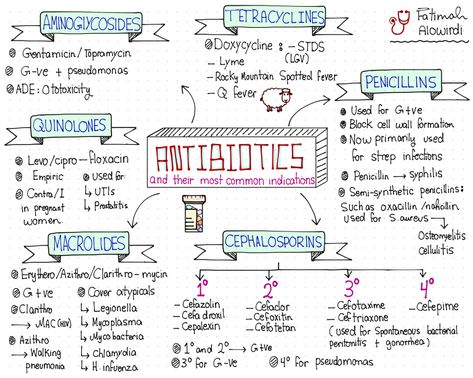 AMINOGLYCOSIDES
Gentamicin / Topramycin
G-ve + pseudomonas
ADE: Ototoxicity
TETRACYCLINES
Doxycycline : - STDS
(LGV)
- Lyme
- Rocky Mountain Spotted fever
- Q fever
Fatimah
Alowirdi
PENICILLINS
Used for G+ve
Block cell wall formation
Now primarily used
for strep infections
Penicillin → syphilis
Semi-synthetic penicillins:
Such as oxacillin / nafcillin
used for S. aureus
Osteomyelitis
cellulitis
QUINOLONES
Levo/cipro - floxacin
Empiric
Contra/I
in pregnant
women.
used for
UTIs
Prostatitis
ANTIBIOTICS
and their most common indications
MACROLIDES
Erythero/Azithro/Clarithro - mycin
G+ve
Clarithro
→ MAC (HIV)
Azithro
→ Walking
pneumonia
Cover atypicals
Legionella
Mycoplasma
Mycobacteria
chlamydia
H. infuenza
CEPHALOSPORINS
1°
- Cefazolin
- Cefadroxil
- Cepalexin
2°
- Cefaclor
- Cefoxitin
- Cefotetan
3°
- Cefotaxime
- Ceftriaxone
(used for Spontaneous bacterial
peritonitis + gonorrhea)
4°
- Cefepime
1° and 2° → G+ve
3° for G-ve
4° for pseudomonas